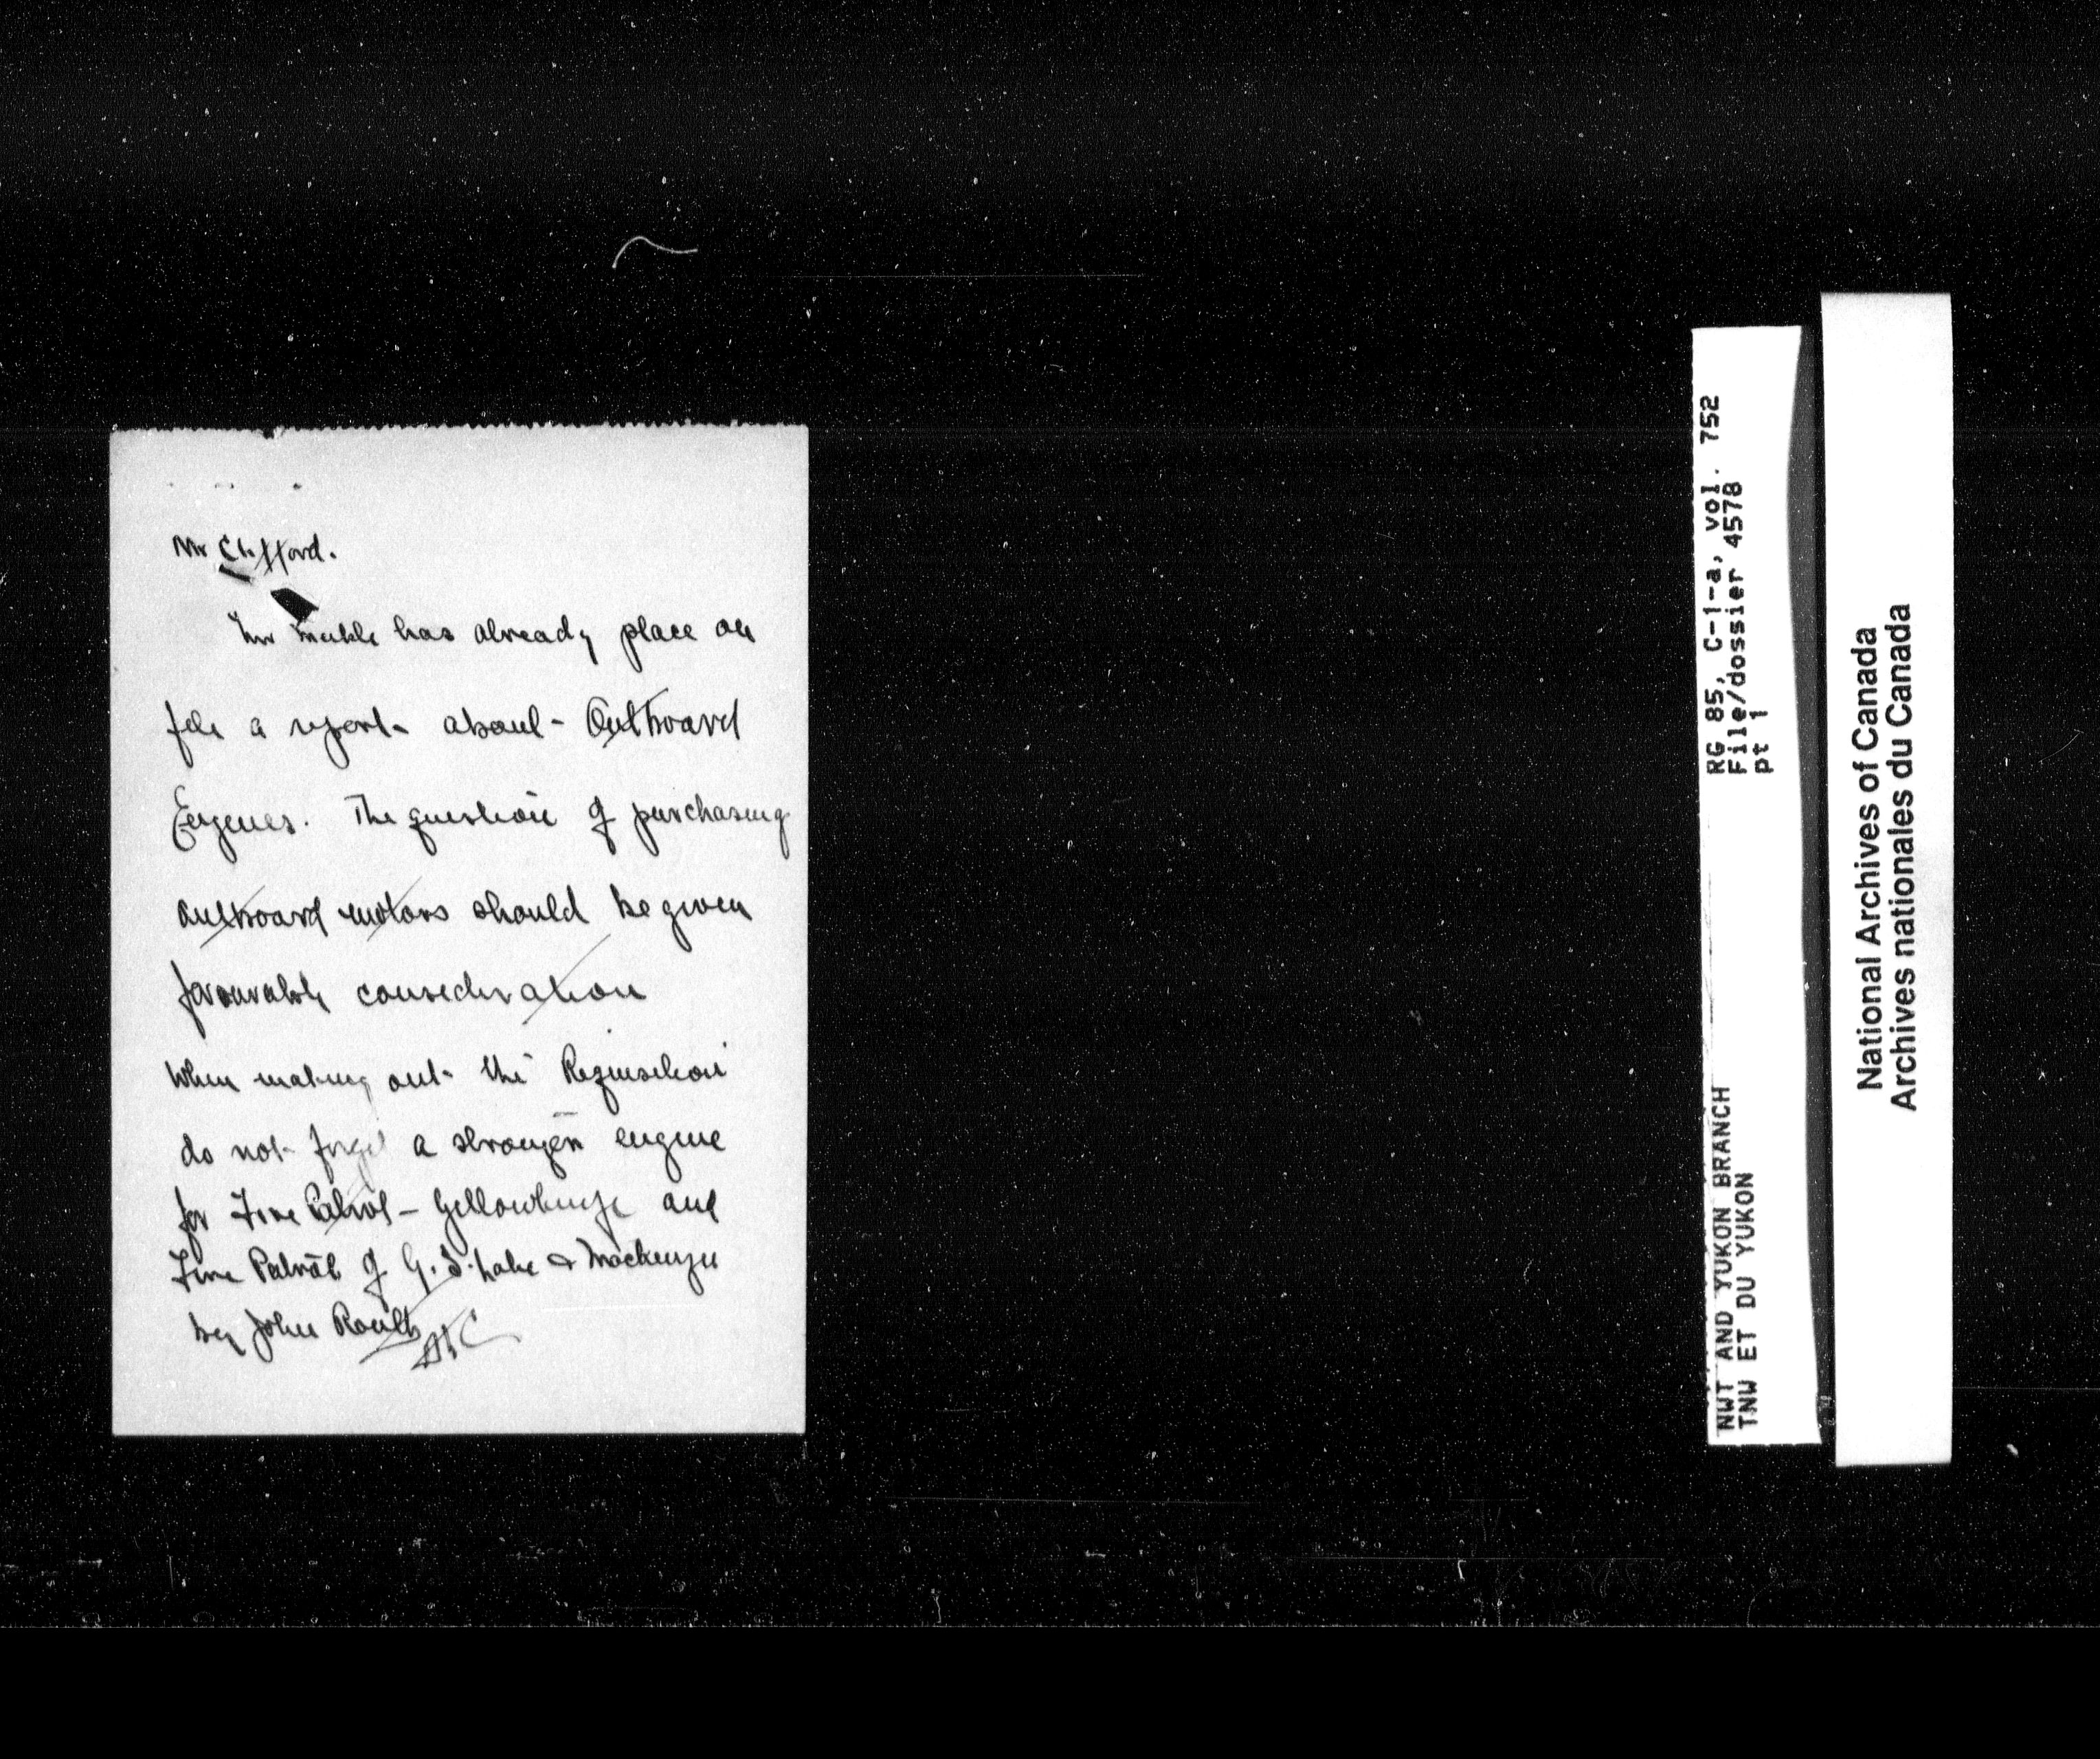 Mr Clifford.
Mr Meikle has already place on
file a report about Outboard
Engines. The question of purchasing
outboard motors should be given
favourable consideration
When making out the Requisition
do not forget a stronger engine
for Fire Patrol - Yellowknife and
Fire Patrol of G. S. Lake & Mackenzie
by John Routh
RG 85, C-1-a, vol. 752
File/dossier 4578
pt 1
NWT AND YUKON BRANCH
TNW ET DU YUKON
National Archives of Canada
Archives nationales du Canada